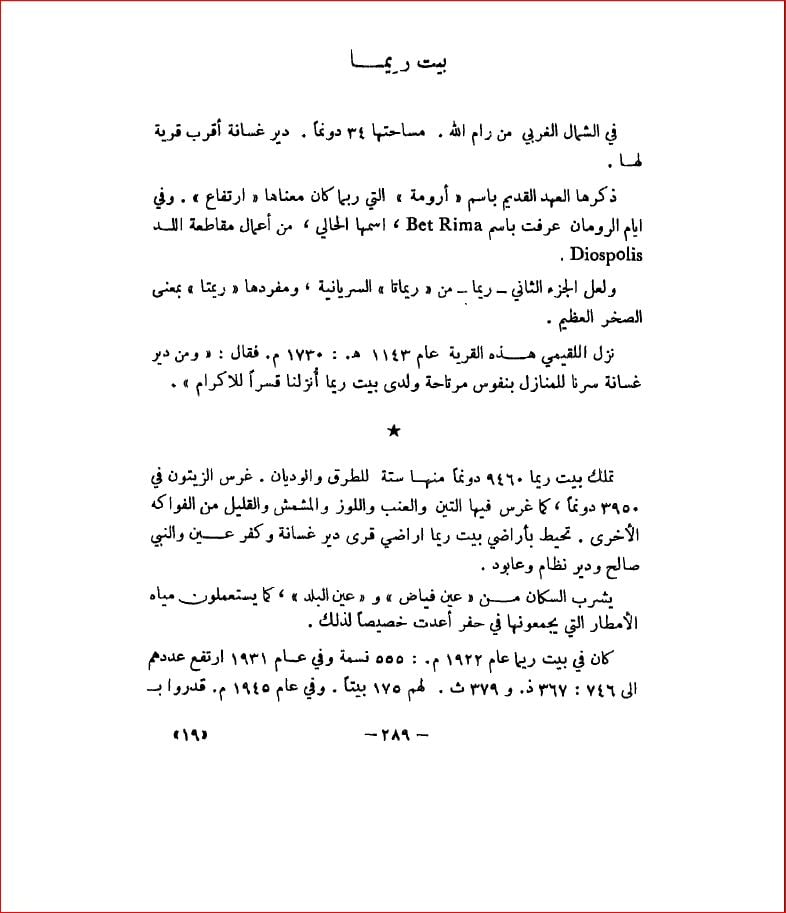 بيت ريمـــا
في الشمال الغربي من رام الله . مساحتها ٣٤ دونماً . دير غسانة أقرب قرية
لهـا .
ذكرها العهد القديم باسم « أرومة » التي ربما كان معناها « ارتفاع » . وفي
ايام الرومان عرفت باسم Bet Rima ، اسمها الحالي ، من أعمال مقاطعة اللـد
Diospolis .
ولعل الجزء الثاني – ريما – من « ريماتا » السريانية ، ومفردها « ريمتا » بمعنى
الصخر العظيم .
نزل اللقيمي هـــذه القرية عام ١١٤٣ هـ. : ١٧٣٠ م. فقال : « ومن دير
غسانة سرنا للمنازل بنفوس مرتاحة ولدى بيت ريما أُنزلنا قسراً للاكرام » .
★
تملك بيت ريما ٩٤٦٠ دونماً منهـا ستة للطرق والوديان . غرس الزيتون في
٣٩٥٠ دونماً ، كما غرس فيها التين والعنب واللوز والمشمش والقليل من الفواكه
الأخرى . تحيط بأراضي بيت ريما اراضي قرى دير غسانة وكفر عـــين والنبي
صالح ودير نظام وعابود .
يشرب السكان مـــن « عين فياض » و « عين البلد » ، كما يستعملون مياه
الأمطار التي يجمعونها في حفر أعدت خصيصاً لذلك .
كان في بيت ريما عام ١٩٢٢ م. : ٥٥٥ نسمة وفي عـام ١٩٣١ ارتفع عددهم
الى ٧٤٦ : ٣٦٧ ذ. و ٣٧٩ ث . لهم ١٧٥ بيتاً . وفي عام ١٩٤٥ م. قدروا بـ
– ٢٨٩ – «١٩»